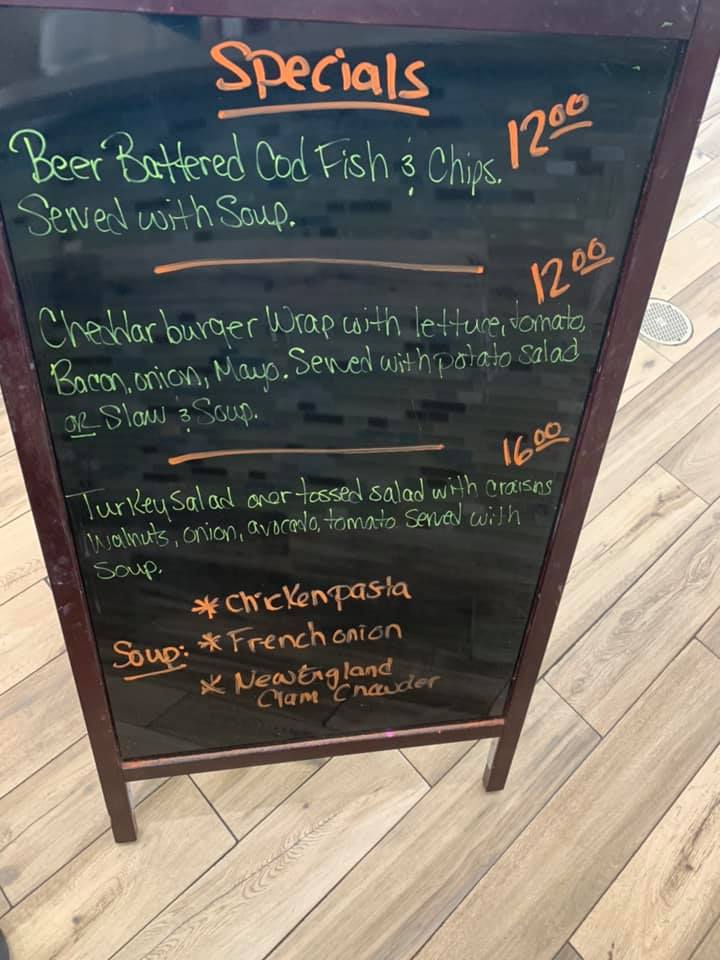 Specials
Beer Battered Cod Fish & Chips. 12.00
Served with Soup.
12.00
Cheddar burger Wrap with lettuce, tomato,
Bacon, onion, Mayo. Served with potato salad
OR Slaw & Soup.
16.00
Turkey Salad over tossed salad with craisins
Walnuts, onion, avocado, tomato. Served with
Soup.
* Chicken pasta
Soup: * French onion
* New England
Clam Chowder